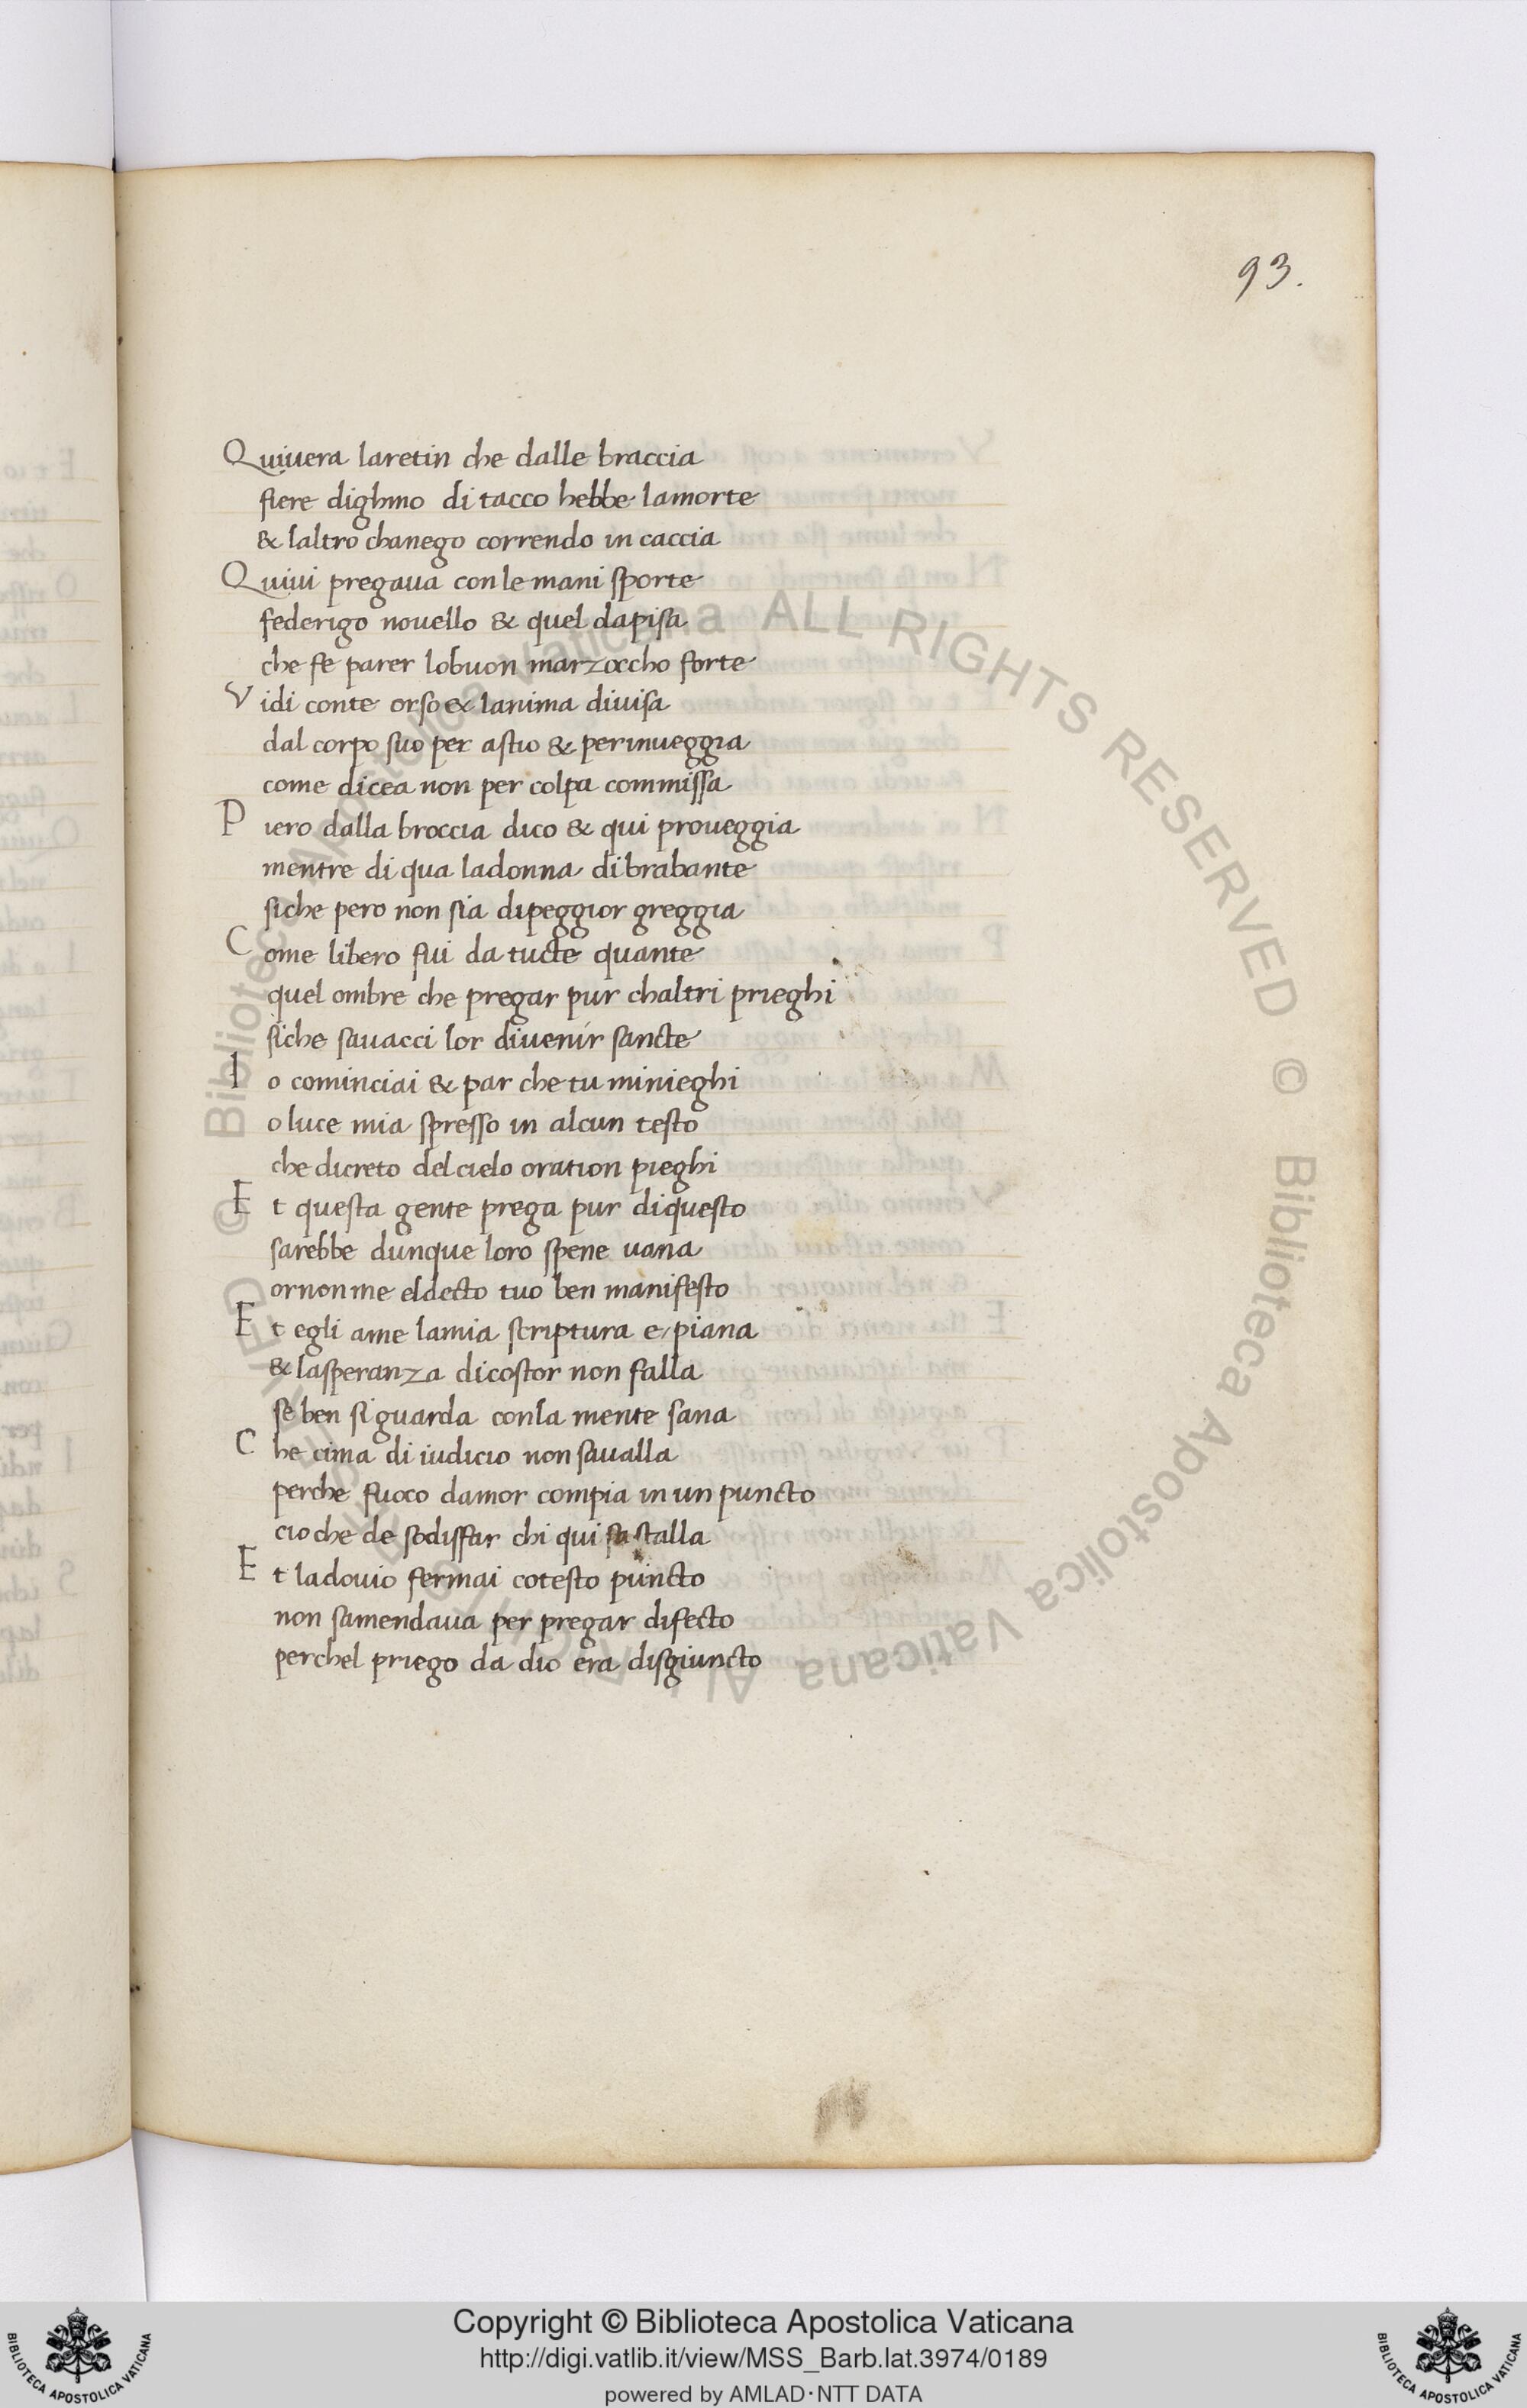 93.
Quiuera laretin che dalle braccia
fiere dighino di tacco hebbe lamorte
& laltro chanego correndo in caccia
Quiui pregaua con le mani sporte
federigo nouello & quel dapisa
che fe parer lobuon marzoccho forte
Vidi conte orso & lanima diuisa
dal corpo suo per astio & perinueggia
come dicea non per colpa commissa
Piero dalla broccia dico & qui proueggia
mentre di qua ladonna di brabante
siche pero non sia dipeggior greggia
Come libero fui da tucte quante
quel ombre che pregar pur chaltri prieghi
siche sauacci lor diuenir sancte
Io cominciai & par che tu minieghi
o luce mia spresso in alcun testo
che dicreto delcielo oration pieghi
Et questa gente prega pur diquesto
sarebbe dunque loro spene uana
ornonme eldecto tuo ben manifesto
Et egli ame lamia scriptura e piana
& lasperanza dicostor non falla
se ben si guarda conla mente sana
Che cima di iudicio non saualla
perche fuoco damor compia in un puncto
cio che de sodisfar chi qui sastalla
Et ladouio fermai cotesto puncto
non samendaua per pregar difecto
perchel priego da dio era disgiuncto
© Biblioteca Apostolica Vaticana ALL RIGHTS RESERVED © Biblioteca Apostolica Vaticana ALL RIGHTS RESERVED
Copyright © Biblioteca Apostolica Vaticana
http://digi.vatlib.it/view/MSS_Barb.lat.3974/0189
powered by AMLAD·NTT DATA
BIBLIOTECA APOSTOLICA VATICANA
BIBLIOTECA APOSTOLICA VATICANA